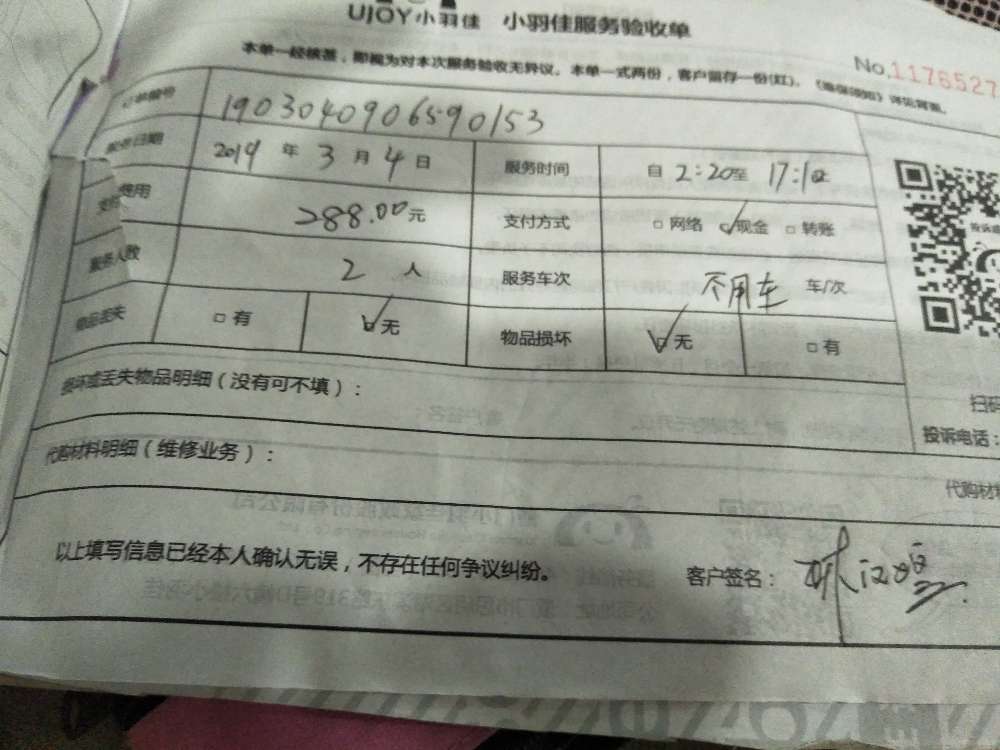 UJOY小羽佳 小羽佳服务验收单
本单一经核签，即视为对本次服务验收无异议。本单一式两份，客户留存一份(红)。
No.1176527
订单编号 1903040906590153
服务日期 2019年3月4日 服务时间 自2:20至17:10
支付费用 288.00元 支付方式 □网络 ☑现金 □转账
服务人数 2人 服务车次 不用车 车/次
物品丢失 □有 ☑无 物品损坏 ☑无 □有
损坏或丢失物品明细（没有可不填）：
扫码
投诉电话：
代购材料明细（维修业务）：
代购材料
以上填写信息已经本人确认无误，不存在任何争议纠纷。
客户签名：